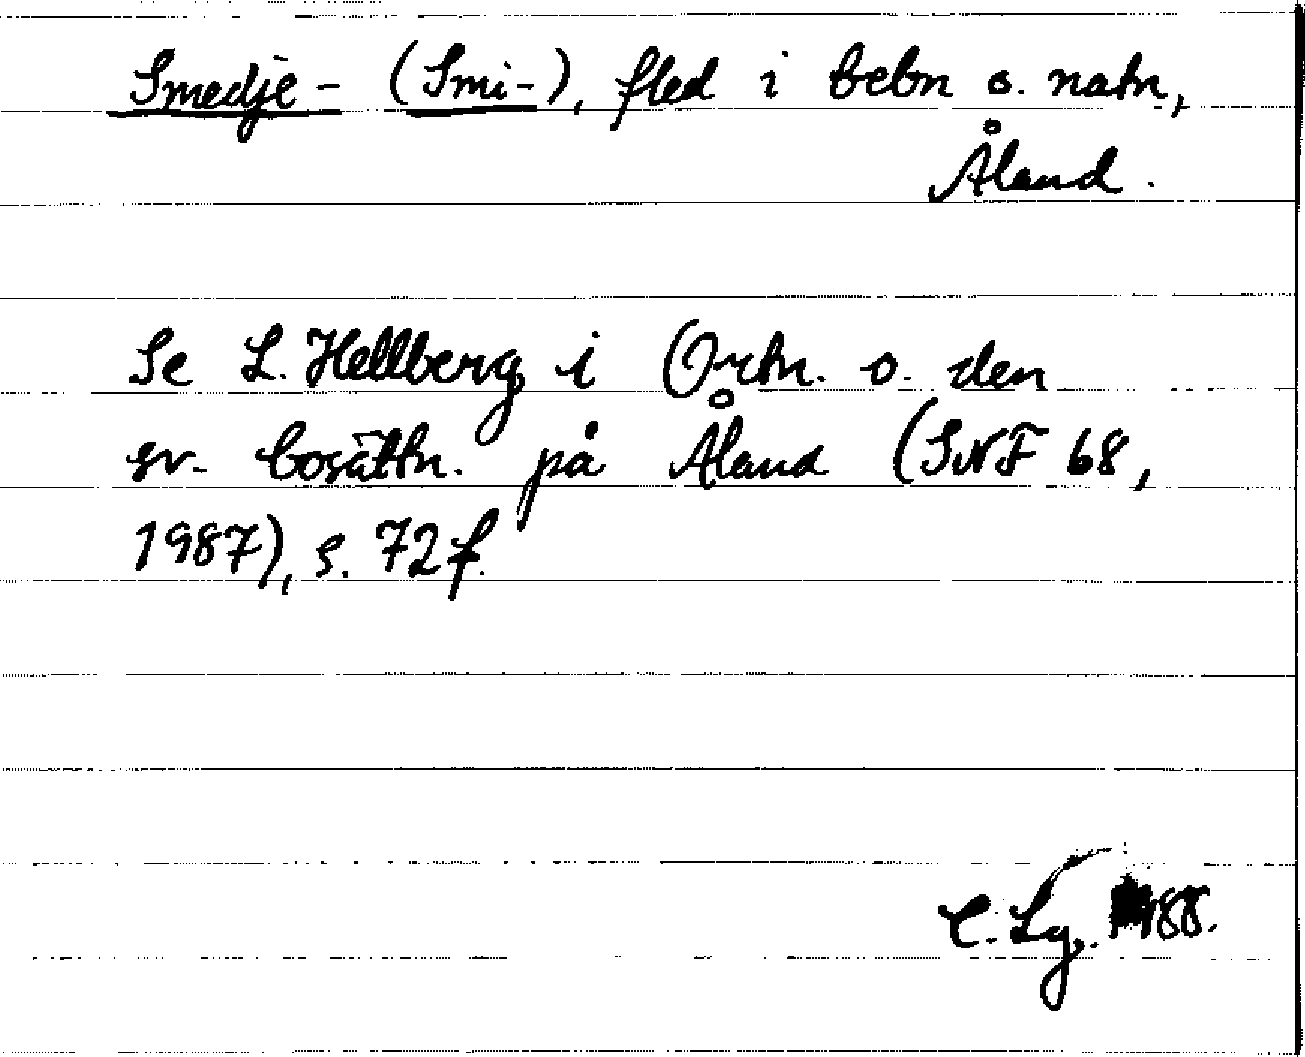 Smedje- (Smi-), fled i bebn o. natn,
Åland.
Se L. Hellberg i Ortn. o. den
sv. bosättn. på Åland (SNF 68,
1987), s. 72 f.
C. Lg. 88.